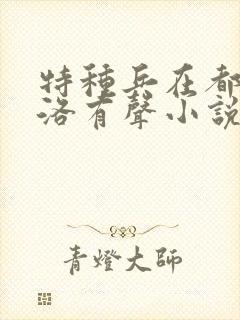 特種兵在都
洛有聲小說
青燈大師